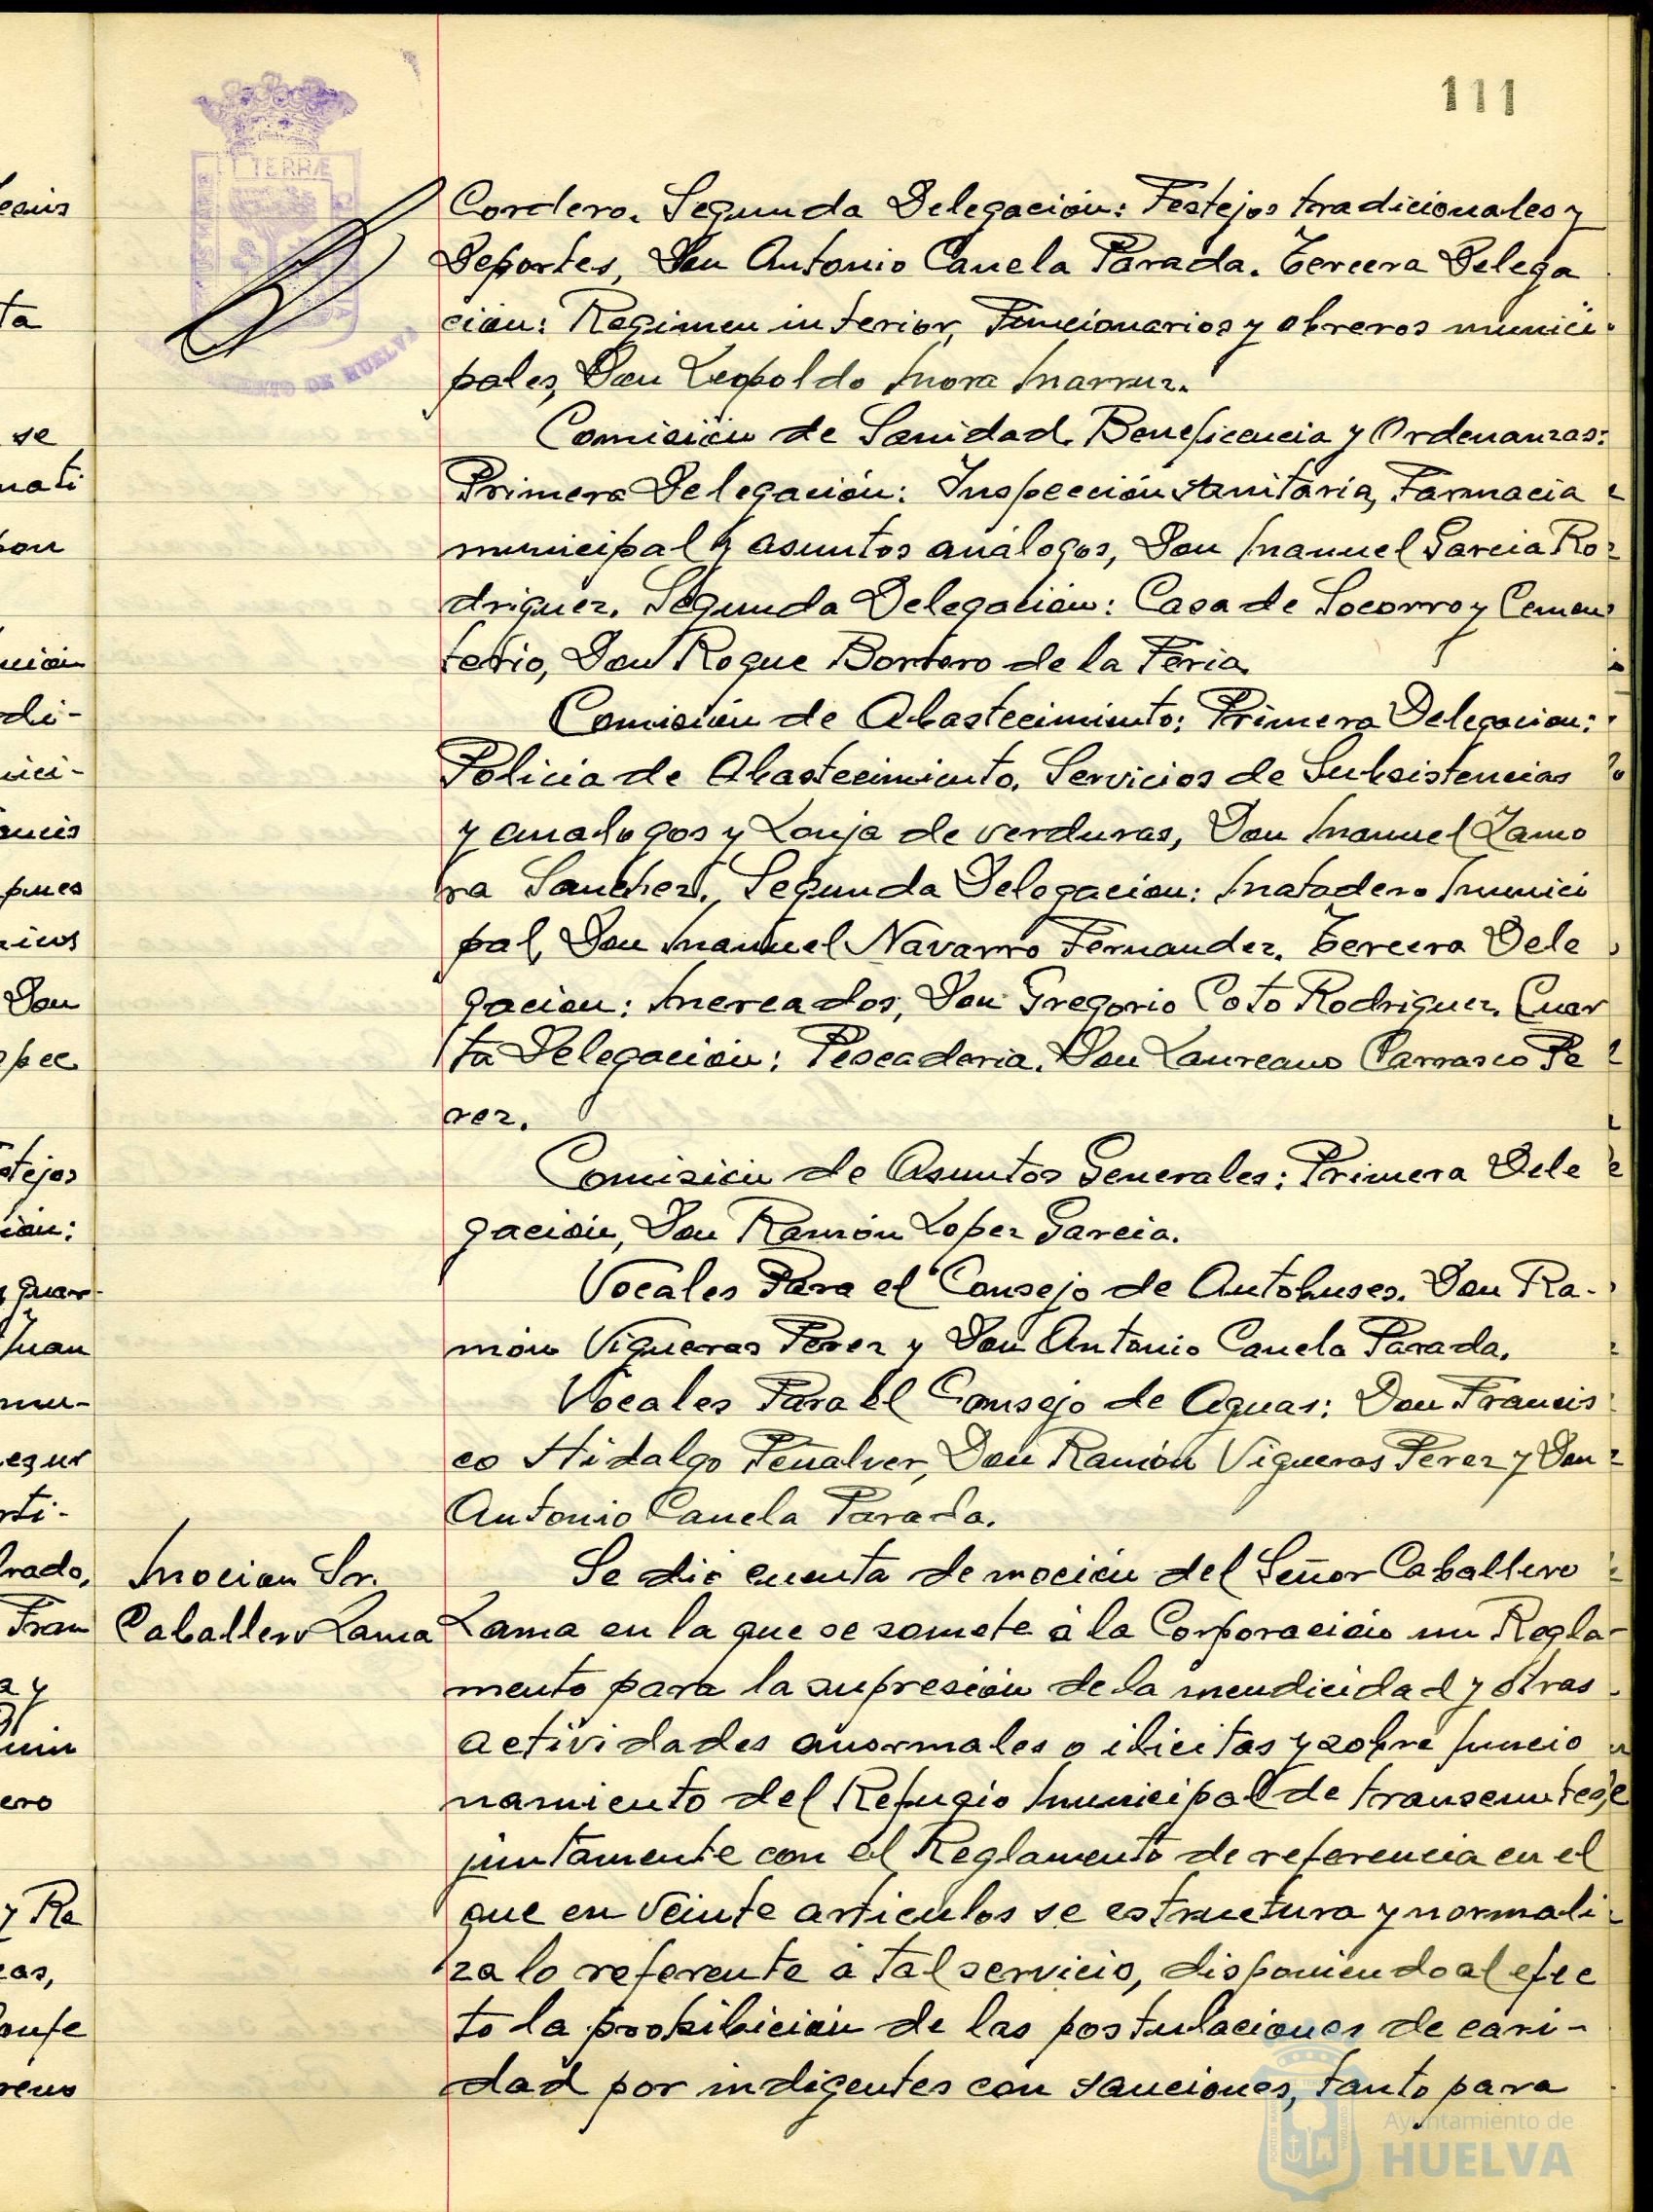 111
TERRÆ
PORTUS MARIS
AYUNTAMIENTO DE HUELVA
Cordero. Segunda Delegación: Festejos tradicionales y
Deportes, Don Antonio Canela Parada. Tercera Delega
ción: Regimen interior, Funcionarios y obreros munici-
pales, Don Leopoldo Mora Marruz.
Comisión de Sanidad, Beneficencia y Ordenanzas:
Primera Delegación: Inspección sanitaria, Farmacia
municipal y asuntos análogos, Don Manuel Garcia Ro-
driguez. Segunda Delegación: Casa de Socorro y Cemen
terio, Don Roque Bortero de la Feria.
Comisión de Abastecimiento: Primera Delegacion:
Policia de Abastecimiento. Servicios de Subsistencias
y analogos y Lonja de verduras, Don Manuel Zamo
ra Sanchez. Segunda Delegacion: Matadero Munici
pal, Don Manuel Navarro Fernandez. Tercera Dele
gacion: Mercados, Don Gregorio Coto Rodriguez. Cuar
ta Delegación: Pescaderia. Don Laureano Carrasco Pe
rez.
Comisión de Asuntos Generales: Primera Dele
gación, Don Ramón Lopez Garcia.
Vocales Para el Consejo de Autobuses. Don Ra-
món Vigueras Perez y Don Antonio Canela Parada.
Vocales Para el Consejo de Aguas: Don Francis
co Hidalgo Peñalver, Don Ramón Vigueras Perez y Don
Antonio Canela Parada.
Moción Sr.
Caballero Lama
Se dió cuenta de moción del Señor Caballero
Lama en la que se somete á la Corporación un Regla-
mento para la supresión de la mendicidad y otras
actividades anormales o ilicitas y sobre funcio
namiento del Refugio Municipal de transeuntes,
juntamente con el Reglamento de referencia en el
que en veinte articulos se estructura y normali
za lo referente á tal servicio, disponiendo al efec
to la prohibición de las postulaciones de cari-
dad por indigentes con sanciones, tanto para
Ayuntamiento de
HUELVA